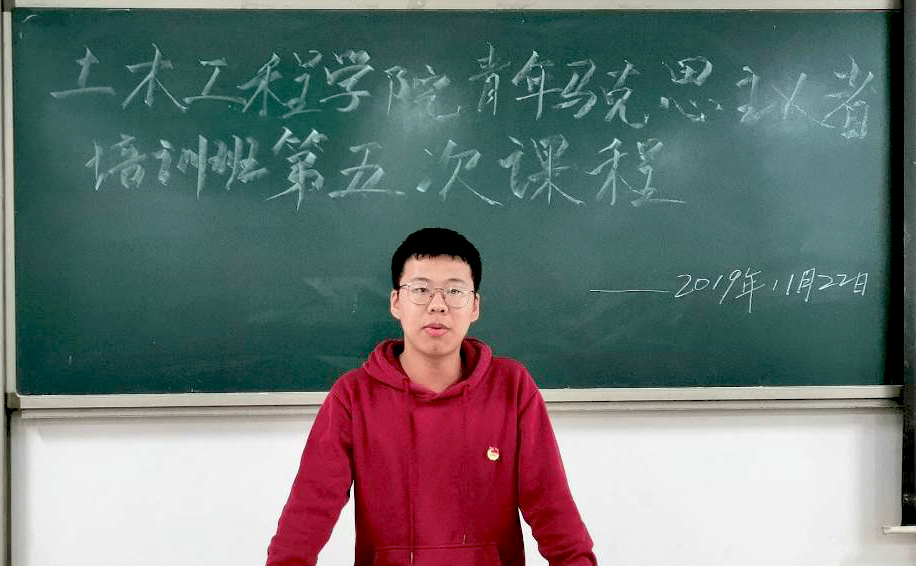 土木工程学院青年马克思主义者
培训班第五次课程
——2019年11月22日